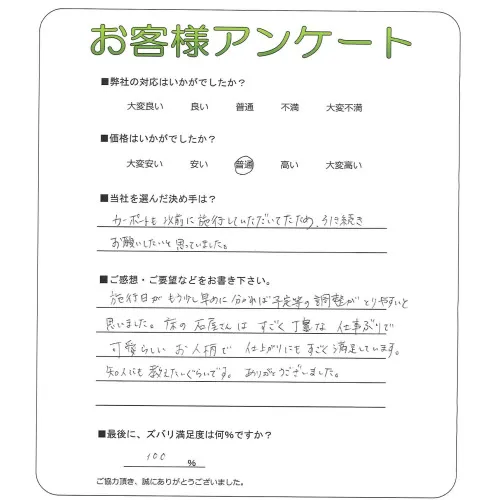 お客様アンケート
■弊社の対応はいかがでしたか？
大変良い 良い 普通 不満 大変不満
■価格はいかがでしたか？
大変安い 安い 普通 高い 大変高い
■当社を選んだ決め手は？
カーポートも以前に施行していただいてたため、引き続き
お願いしたいと思っていました。
■ご感想・ご要望などをお書き下さい。
施行日がもう少し早めに分かれば予定等の調整がとりやすいと
思いました。床の石屋さんはすごく丁寧な仕事ぶりで
可愛らしいお人柄で仕上がりにもすごく満足しています。
知人にも教えたいぐらいです。ありがとうございました。
■最後に、ズバリ満足度は何％ですか？
100 ％
ご協力頂き、誠にありがとうございました。